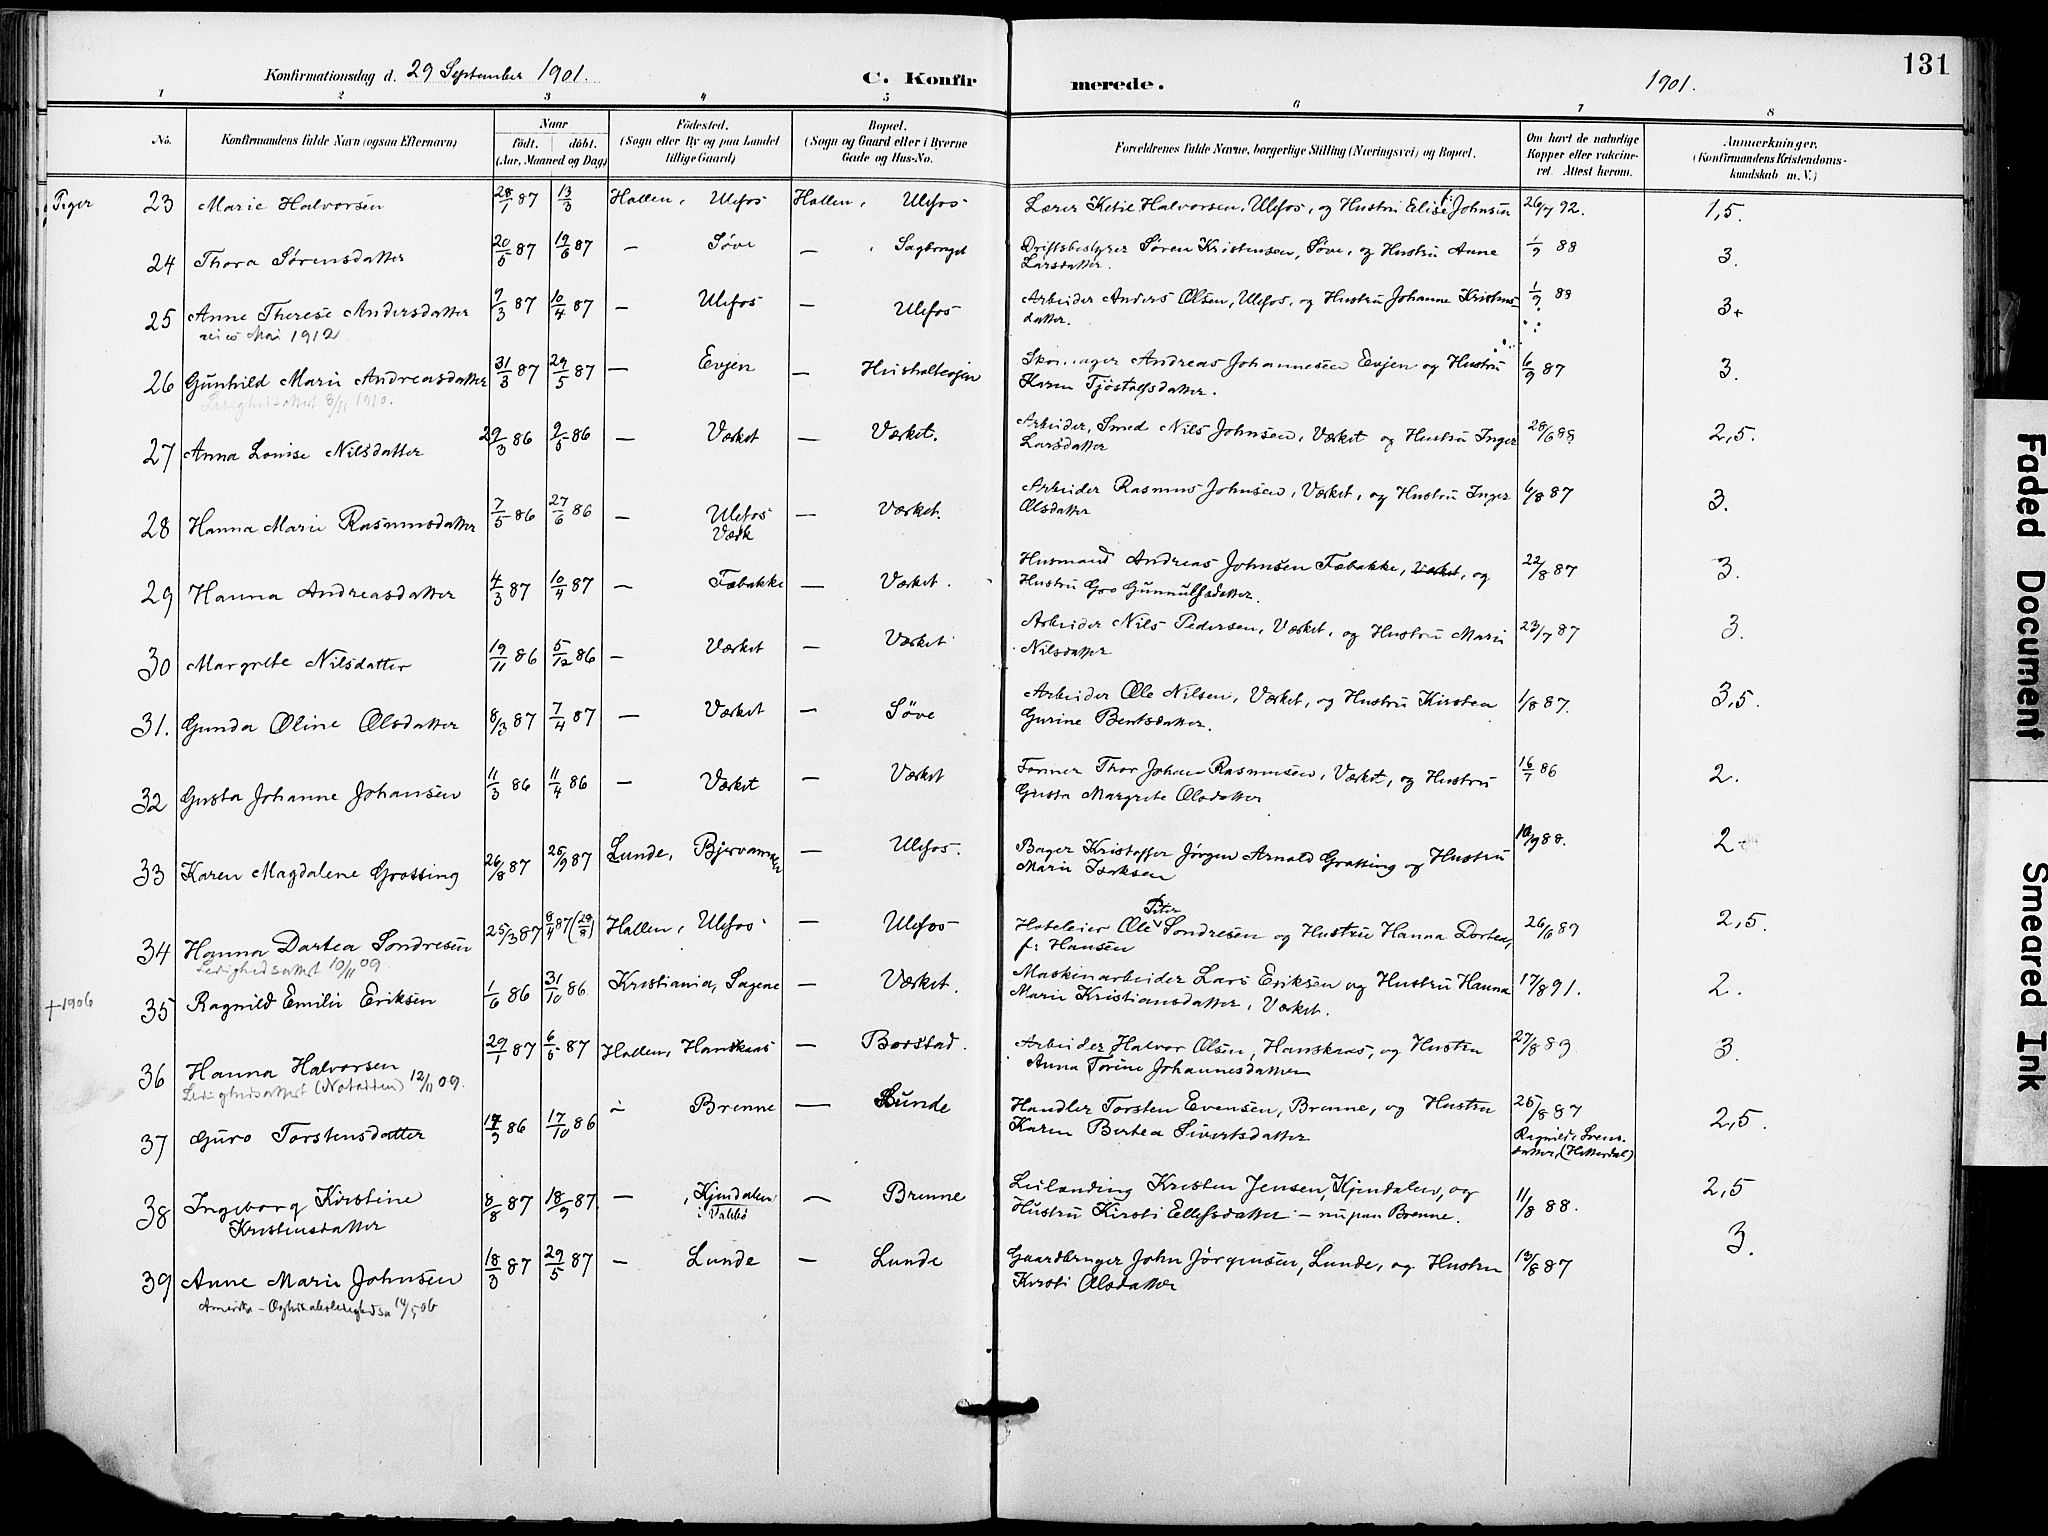 Konfirmationsdag d. 29 September 1901. C. Konfir merede. 1901. 131
1 2 3 4 5 6 7 8
No. Konfirmandens fulde Navn (ogsaa Efternavn) Naar født. døbt. (Aar, Maaned og Dag) Fødested. (Sogn eller By og paa Landet tillige Gaard) Bopæl. (Sogn og Gaard eller i Byerne Gade og Hus-No. Forældrenes fulde Navne, borgerlige Stilling (Næringsvei) og Bopæl. Om havt de naturlige Kopper eller vaccineret. Attest herom. Anmærkninger. (Konfirmandens Kristendomskundskab m. V.)
Piger 23 Marie Halvorsen 28/1 87 13/3 Hollen, Ulefos Hollen, Ulefos Lærer Ketil Halvorsen, Ulefos, og Hustru Elise f: Johnsen 26/7 92. 1,5.
24 Thora Sørensdatter 20/5 87 19/6 87 — Søve — Sagbruget Driftsbestyrer Søren Kristensen, Søve, og Hustru Anne Larsdatter. 1/9 88 3.
25 Anne Therese Andersdatter 9/3 87 10/4 87 — Ulefos — Ulefos Arbeider Anders Olsen, Ulefos, og Hustru Johanne Kristensdatter. 1/9 88 3+
Mai 1912
26 Gunhild Marie Andreasdatter 31/3 87 29/5 87 — Evjen — Arbeider Skomager Andreas Johannesen Evjen og Hustru Karen Tjøstolfsdatter. 6/9 87 3.
Ledighedsattest 8/11 1910.
27 Anna Louise Nilsdatter 29/3 86 9/5 86 — Værket — Værket. Arbeider, Smed Nils Johnsen, Værket og Hustru Inger Larsdatter 28/6 88 2,5.
28 Hanna Marie Rasmusdatter 7/5 86 27/6 86 — Ulefos Værk — Værket. Arbeider Rasmus Johnsen, Værket, og Hustru Inger Olsdatter 6/8 87 3.
29 Hanna Andreasdatter 4/3 87 10/4 87 — Fæbakke — Værket. Husmand Andreas Johnsen Fæbakke, Værket, og Hustru Gro Gunnulfsdatter. 22/8 87 3.
30 Margrete Nilsdatter 19/11 86 5/12 86 — Værket — Værket Arbeider Nils Pedersen, Værket, og Hustru Marie Nilsdatter 23/7 87 3.
31. Gunda Oline Olsdatter 8/3 87 7/4 87 — Værket — Søve Arbeider Ole Nilsen, Værket, og Hustru Kirsten Gurine Bentsdatter. 1/8 87. 3,5.
32 Gusta Johanne Johansen 11/3 86 11/4 86 — Værket — Værket Former Thor Johan Rasmusen, Værket, og Hustru Gusta Margrete Olsdatter 16/7 86 2.
33 Karen Magdalene Grotting 26/8 87 25/9 87 Lunde, — Ulefos. Bager Kristoffer Jørgen Arnold Grotting og Hustru Marie Isaksen 10/9 88. 2
34 Hanna Dortea Sondresen 25/3 87 8/4 87 Hollen, Ulefos — Ulefos Hoteleier Ole Peter Sondresen og Hustru Hanna Dortea, f: Hansen 26/6 89 2,5.
Ledighedsattest 10/11 09
†1906 35 Ragnild Emilie Eriksen 1/6 86 31/10 86 Kristiania, Sagene — Værket. Maskinarbeider Lars Eriksen og Hustru Hanna Marie Kristiansdatter, Værket. 17/8 91. 2.
36 Hanna Halvorsen 29/1 87 6/5 87 Hollen, Hanskaas — Borstad. Arbeider Halvor Olsen, Hanskaas, og Hustru Anna Torine Johannesdatter 27/8 89 3.
Ledighedsattest (Notodden) 12/11 09.
37 Guro Torstensdatter 17/9 86 17/10 86 — Brenne — Lunde Handler Torsten Evensen, Brenne, og Hustru Karen Bertea Sivertsdatter 25/8 87 2,5.
38 Ingeborg Kirstine Kristensdatter 8/8 87 18/9 87 — Kjendalen — Brenne Leilending Kristen Jensen, Kjendalen, og Hustru Kirsti Ellefsdatter — nu paa Brenne. 11/8 88. 2,5
39 Anne Marie Johnsen 18/3 87 29/5 87 — Lunde — Lunde Gaardbruger John Jørgensen, Lunde, og Hustru Kirsti Olsdatter 13/8 87 3.
Amerika
Faded Document
Smeared Ink